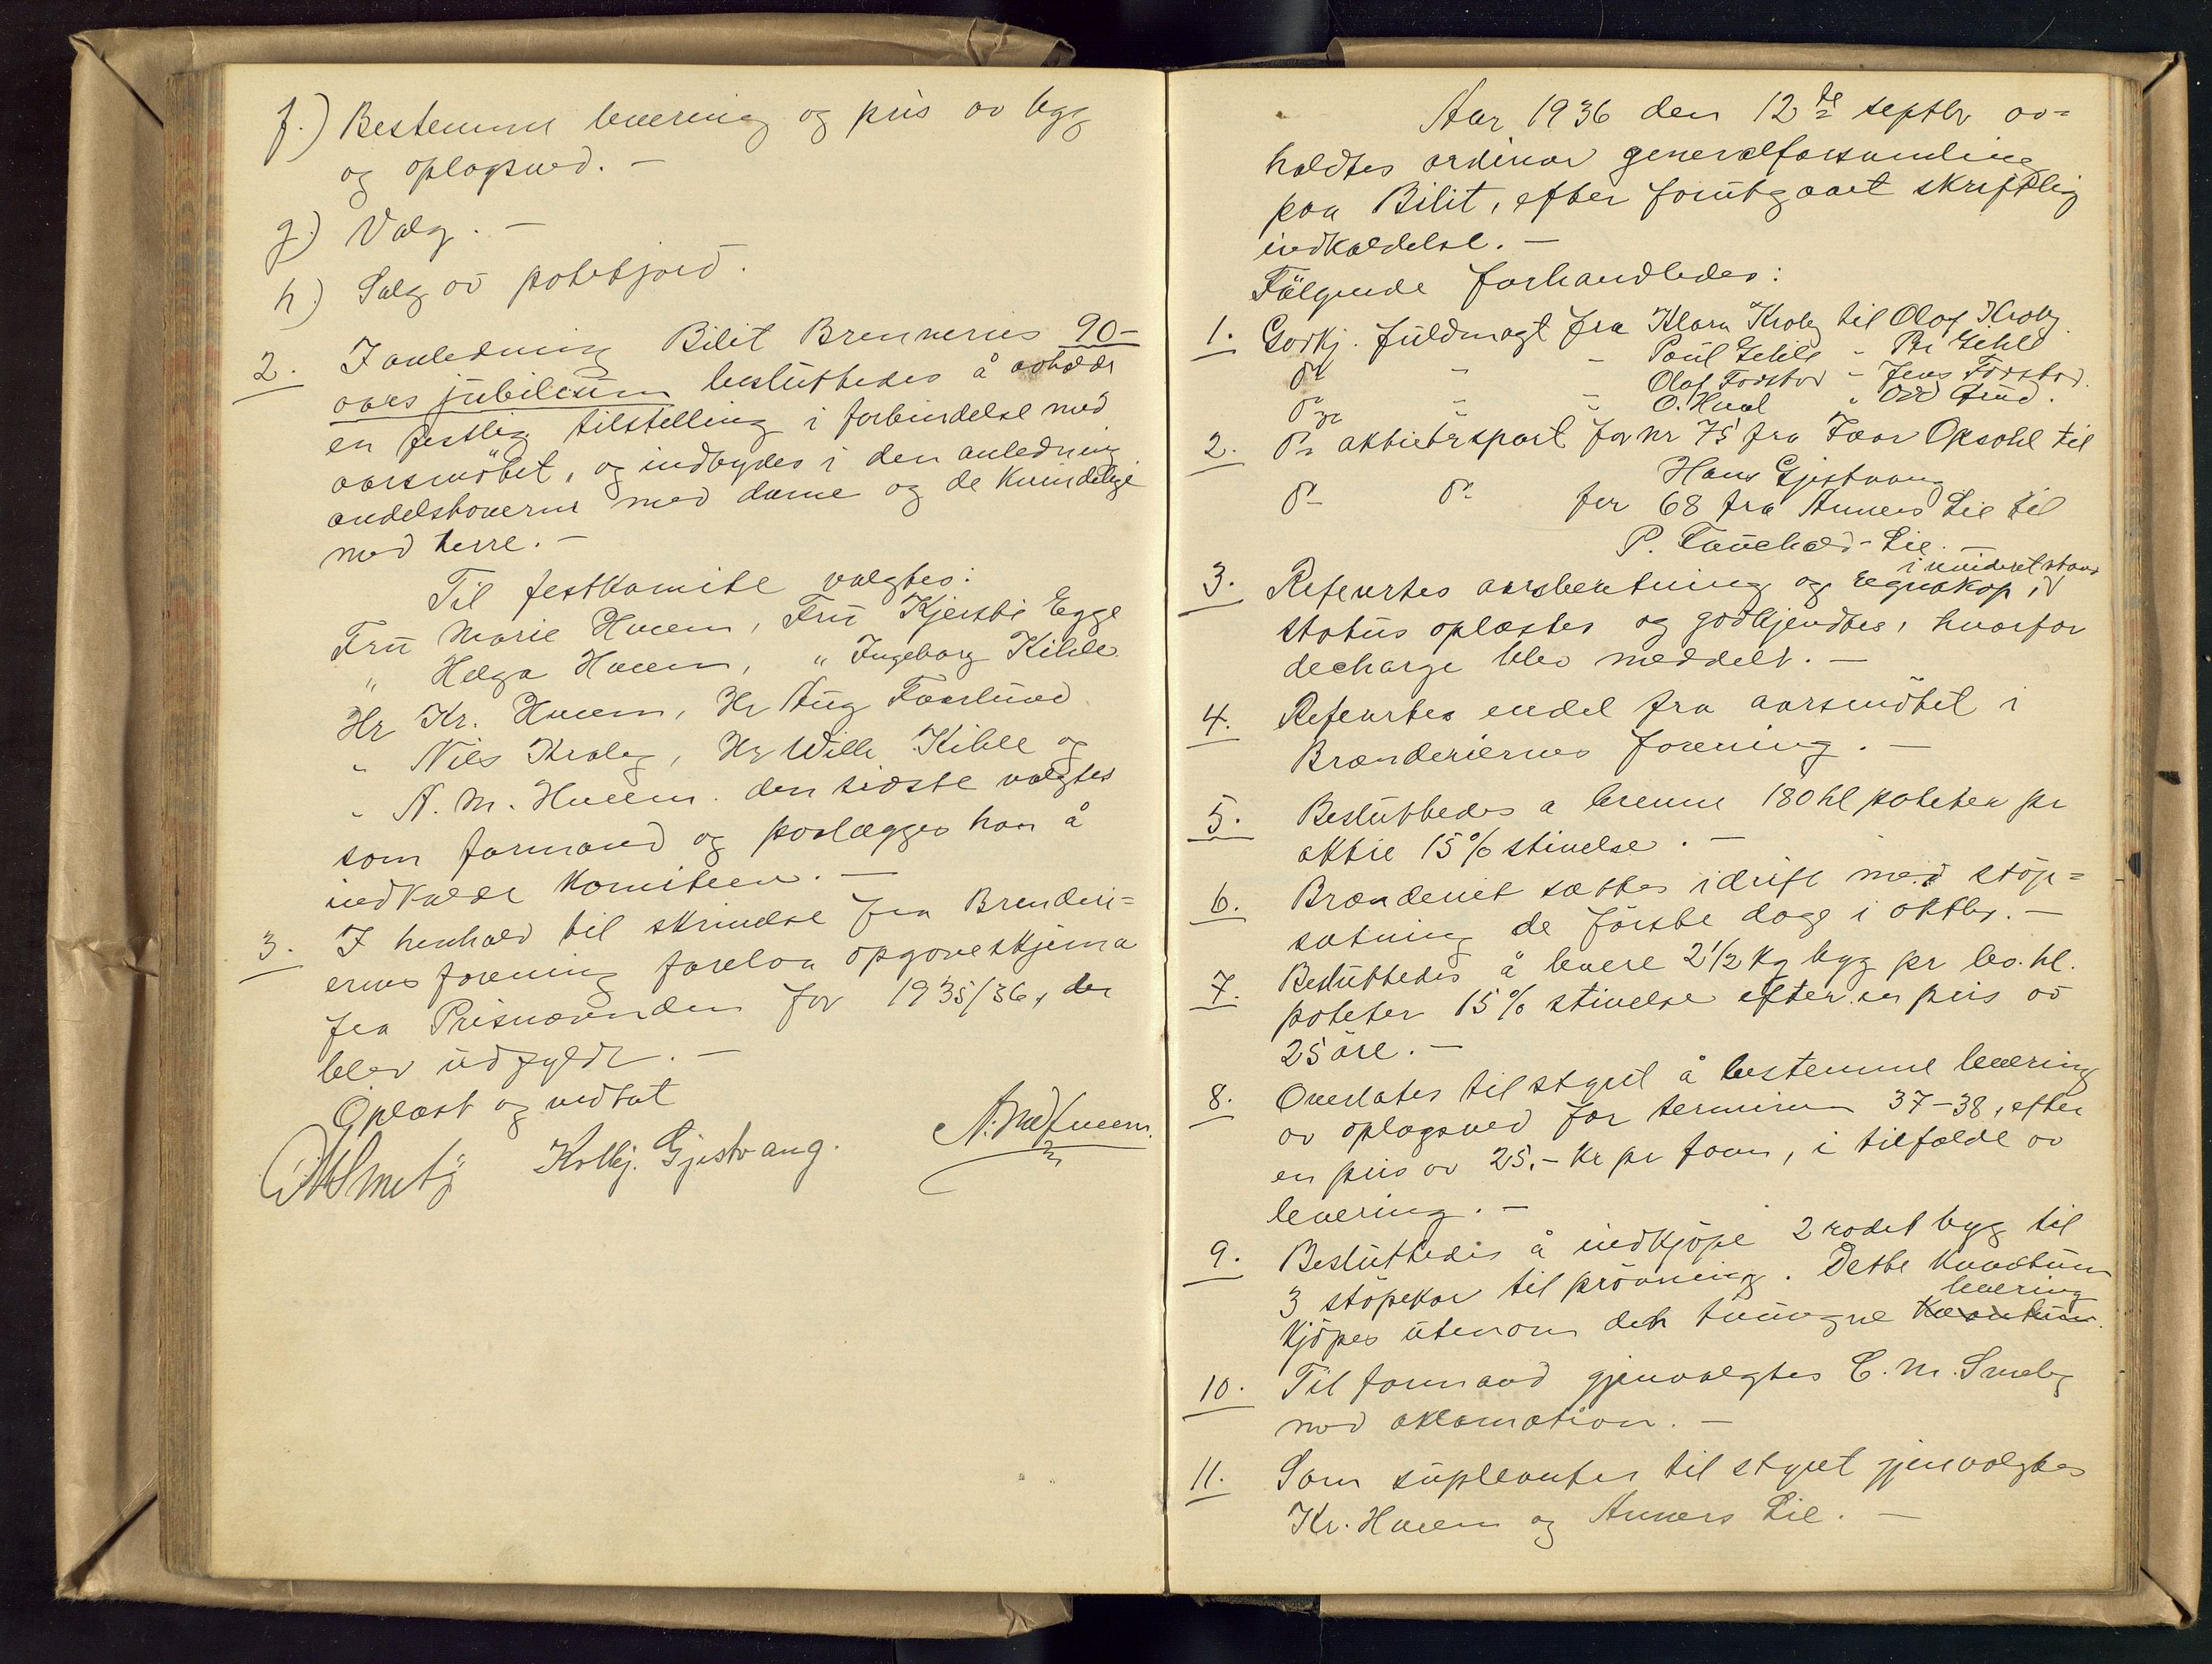 f.) Bestemme levering og pris av bygg
og oplagsved. –
g) Valg. –
h) Salg av potetjord.
2. I anledning Bilit Brenneries 90-
aars jubileum besluttedes å avholde
en festlig tilstelling i forbindelse med
aarsmötet, og indbydes i den anledning
andelshaverne med dame og de kvindelige
med herre. –
Til festkomite valgtes:
Fru Marie Hveem, Fru Kjersti Egge
" Helga Hveem, " Ingeborg Kihle
Hr Kr. Hveem, Hr Aug Faarlund
" Nils Kraby, Hr Wilh Kihle og
" A. M. Hveem. den sidste valgtes
som formand og paalægges han å
indkalde komiteen. –
3. I henhold til skrivelse fra Brenderi=
ernes forening forelaa opgaveskjema
fra Prisnævnden for 1935/36, der
blev udfyldt. –
Oplæst og vedtat
CMSmeby Kolbj. Gjestvang. A. M. Hveem.
Aar 1936 den 12te septbr av=
holdtes ordinær generalforsamling
paa Bilit, efter forutgaaet skriftlig
indkaldelse. –
Fölgende forhandledes:
1. Godkj. fuldmagt fra Klara Kraby til Olaf Kraby
do " – Paul Gihle – Pr Gihle
do " " Olaf Forstod – Jens Forstod.
do " " O. Hval " Odd Grud.
2. do aktietrsport for nr 75 fra Ivar Opsahl til
Hans Gjestvang
do do for 68 fra Anners Lie til
P. Fauchald-Lie. –
3. Refertes aarsberetning og regnskap, i revideret stand
status oplæstes og godkjendtes, hvorfor
decharge blev meddelt. –
4. Refertes endel fra aarsmötet i
Brænderiernes forening. –
5. Besluttedes a brenne 180 hl poteter pr
aktie 15% stivelse. –
6. Brænderiet sættes i drift med stöp=
sætning de förste dage i oktbr. –
7. Besluttedes å levere 2½ kg bygg pr lev. hl.
poteter 15% stivelse efter en pris av
25 öre. –
8. Overlates til styret å bestemme levering
av oplagsved for terminen 37–38, efter
en pris av 25.– kr pr favn, i tilfælde av
levering. –
9. Besluttedes å indkjöpe 2 radet bygg til
3 stöpekar til prövning. Dette kvantum
kjöpes utenom den tvungne kvantum. levering
10. Til formand gjenvalgtes C. M. Smeby
med aklamation. –
11. Som supleanter til styret gjenvalgtes
Kr. Hveem og Anners Lie. –